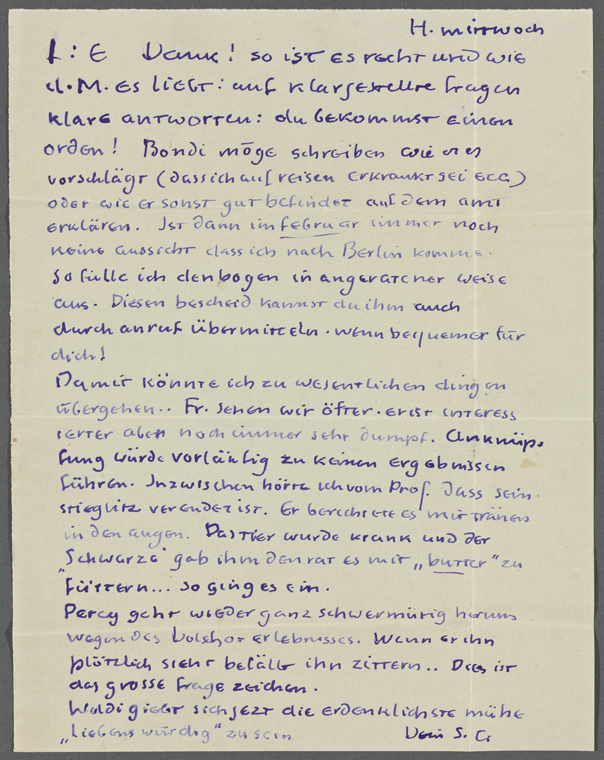 H. mittwoch
L: E Dank! so ist es recht und wie
d. M. es liebt: auf klargestellte fragen
klare antworten: du bekommst einen
orden! Bondi möge schreiben wie er es
vorschlägt (dass ich auf reisen erkrankt sei ecc.)
oder wie er sonst gut befindet auf dem amt
erklären. Ist dann im februar immer noch
keine aussicht dass ich nach Berlin komme.
So fülle ich den bogen in angeratener weise
aus. Diesen bescheid kannst du ihm auch
durch anruf übermitteln. wenn bequemer für
dich!
Damit könnte ich zu wesentlichen dingen
übergehen.. Fr. sehen wir öfter. er ist interess
ierter aber noch immer sehr dumpf. Anknüp-
fung würde vorläufig zu keinen ergebnissen
führen. Inzwischen hörte ich vom Prof. dass sein
stieglitz verendet ist. Er berichtete es mir tränen
in den augen. Das tier wurde krank und der
„Schwarze" gab ihm den rat es mit „butter" zu
füttern... so ging es ein.
Percy geht wieder ganz schwermütig herum
wegen des erlebnisses. Wenn er ihn
plötzlich sieht befällt ihn zittern.. Dies ist
das grosse frage zeichen.
Woldi giebt sich jezt die erdenklichste mühe
„liebenswürdig" zu sein Dein S. G.